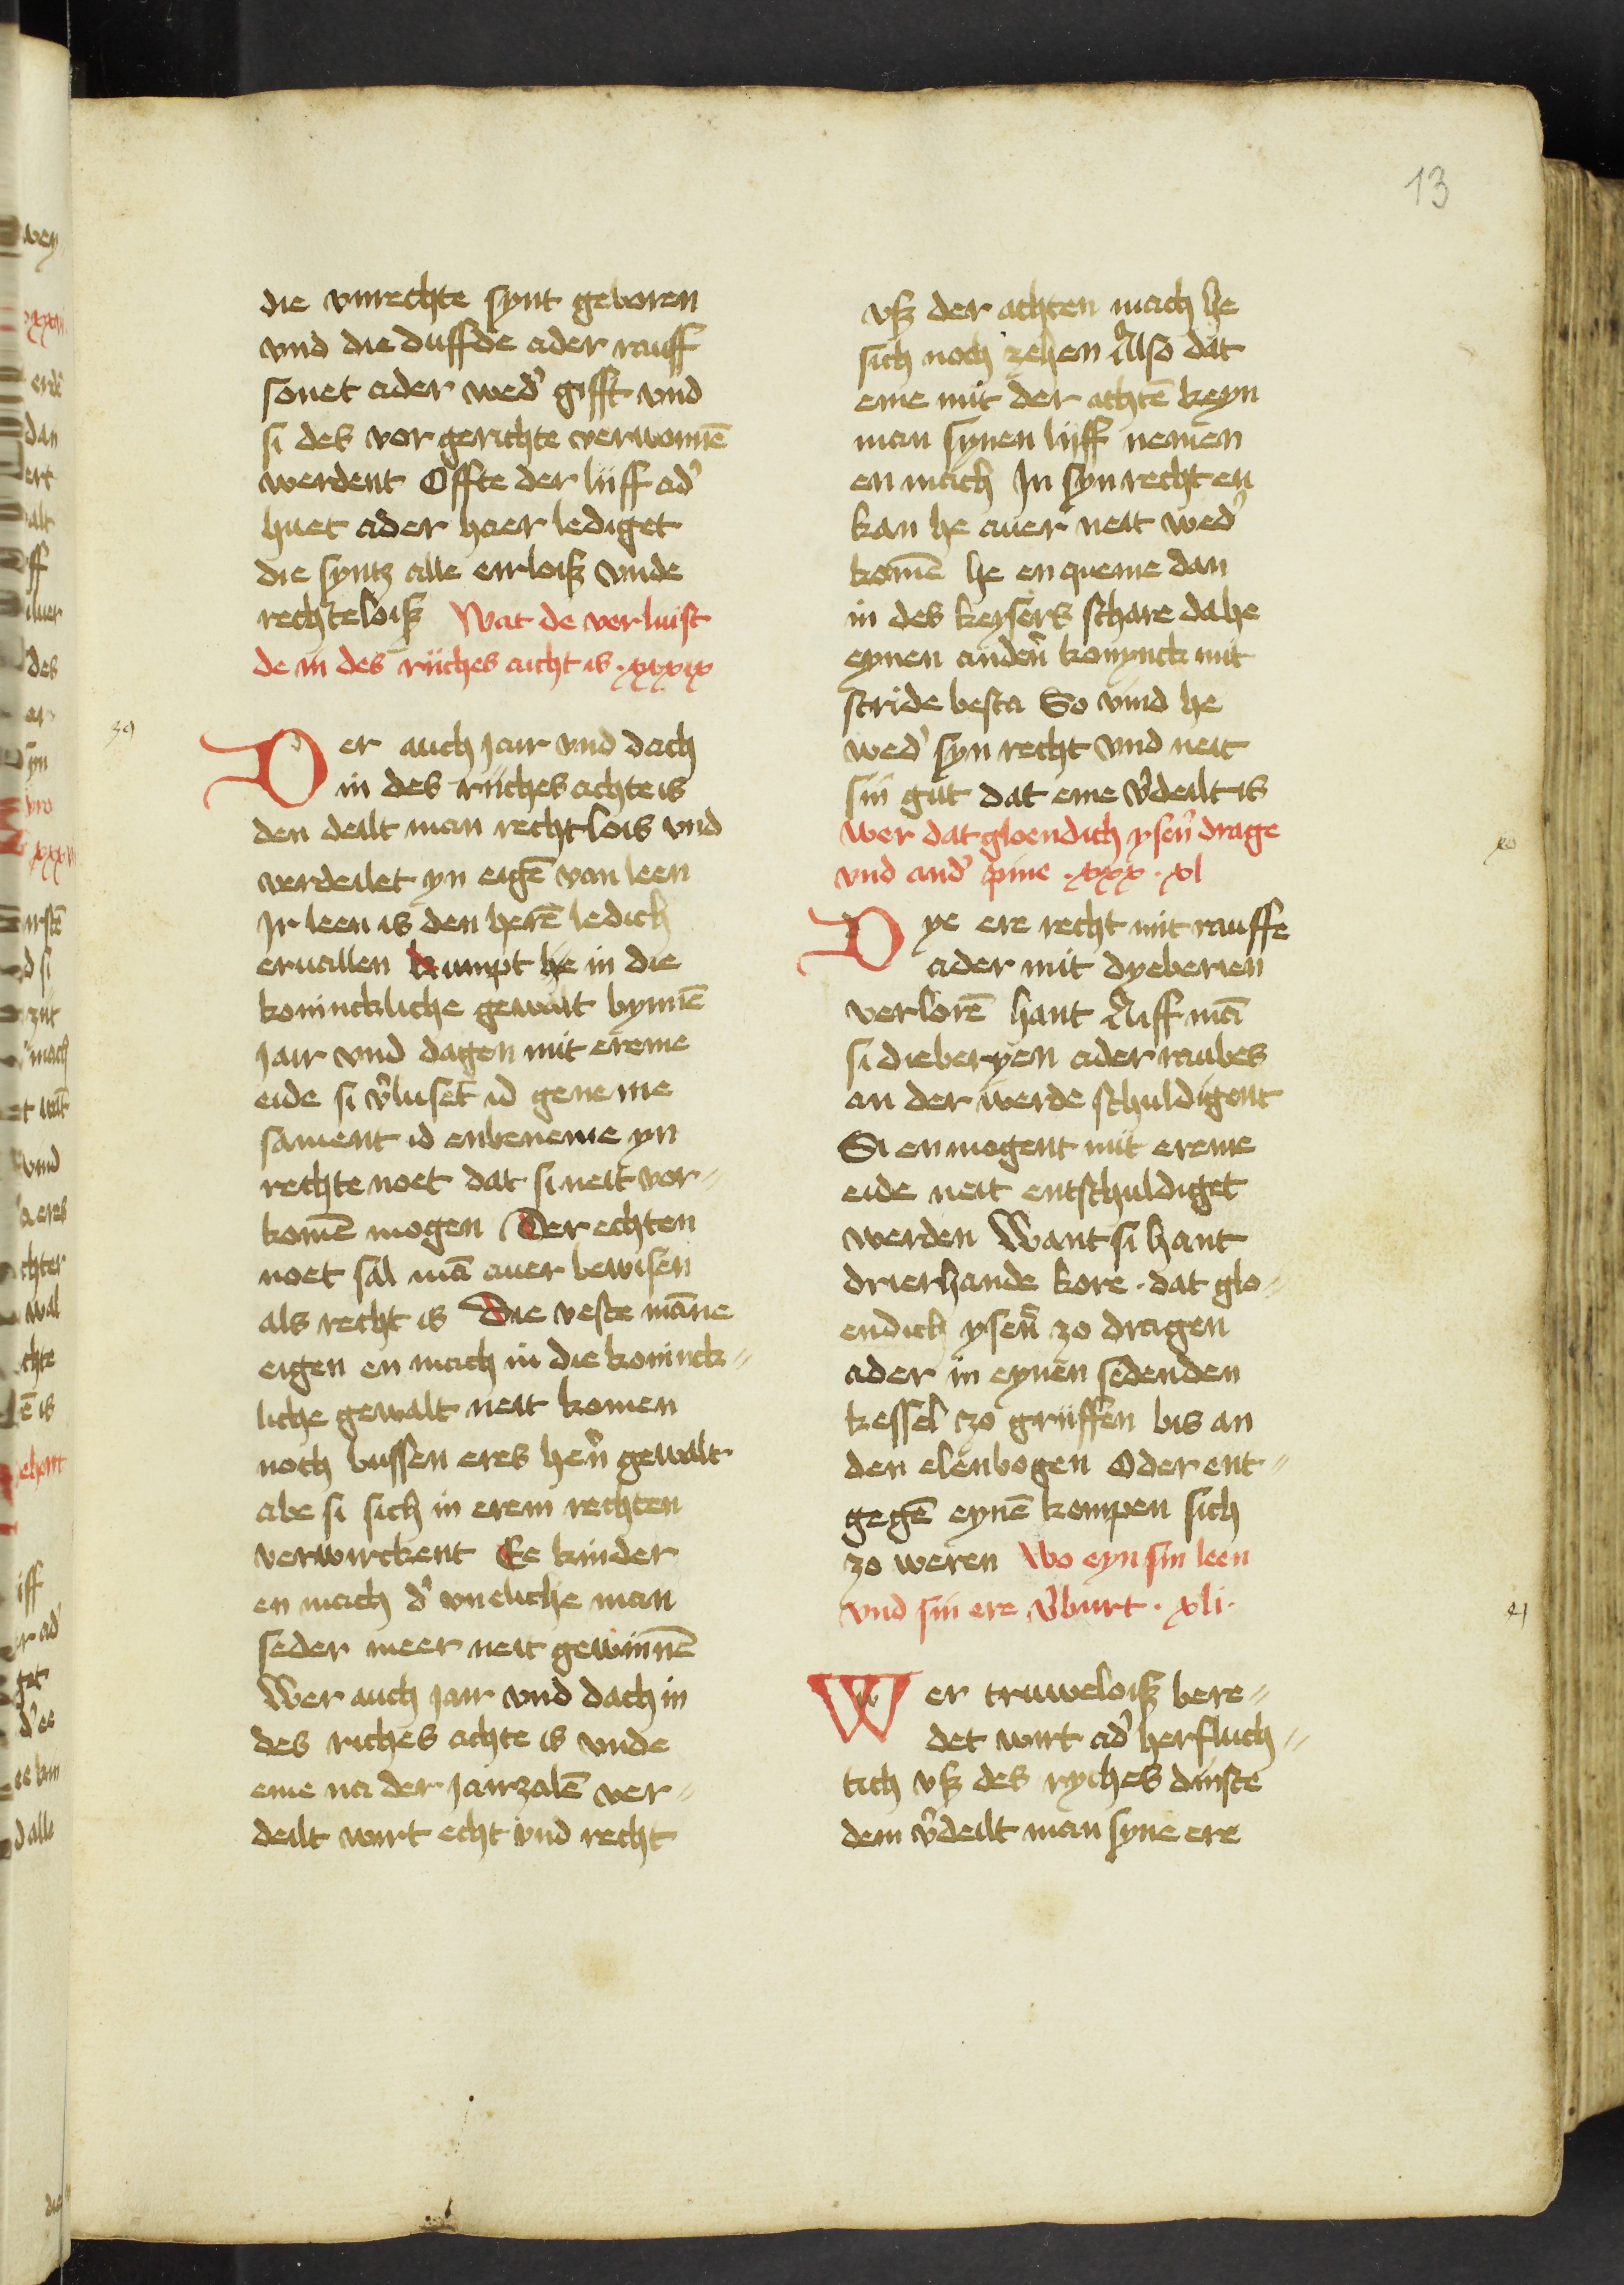 13
die vnrechte synt geboren
vnd die duffde ader rauff
sonet ader wed' gifft vnd
si des vor gerichte verwonnē
werdent Offte der lijff ad'
huet ader haer lediget
die syntz alle eirloiß vnde
rechteloiß Wat de verluist
de in des rijches aicht is . xxxix
39
Der auch jair vnd dach
in des rijches achte is
den deilt man rechtlois vnd
verdeilet yn eigē van leen
Ir leen is den herē ledich
eruallen kumpt he in die
koninckliche gewalt bynnē
jair vnd dagen mit ereme
eide si v'luset id geneme
sament id enbeneme yn
rechte noet dat si neit vor=
komē mogen Der echten
noet sal mā auer bewisen
als recht is Die veste māne
eigen en mach in die koninck=
liche gewalt neit komen
noch bussen eres hern̄ gewalt
abe si sich in erem rechten
verwirckent Ee kinder
en mach d' vneliche man
seder meer neit gewinnē
Wer auch jair vnd dach in
des riches achte is vnde
eme na der jairzalē ver=
deilt wirt echt vnd recht
vß der achten mach he
sich noch zehen Also dat
eme mit der achtē keyn
man synen lijff nemen
en mach In syn recht en
kan he auer neit wed'
komē he en queme dan
in des keysers schare da he
eynen anden̄ konynck mit
stride besta So vind he
wed' syn recht vnd neit
sin gut dat eme v'deilt is
wer dat gloendich ysen̄ drage
vnd and' pine . xxx . xl
xo
Dye ere recht mit rauffe
ader mit dyeberien
verlorē hant Aiff mā
si dieberyen ader raubes
an der werde schuldigent
Si en mogent mit ereme
eide neit entschuldiget
werden Want si hant
drierhande kore . dat glo=
endich ysen̄ zo dragen
ader in eynen sedenden
kessel zo grijffen bis an
den elenbogen Oder ent=
gegē eynē kempen sich
zo weren Wo eyn sin leen
vnd sin ere v'burt . xli .
41
Wer truweloiß bere=
det wirt ad' herfluch=
tich vß des ryches dinste
dem v'deilt man syne ere